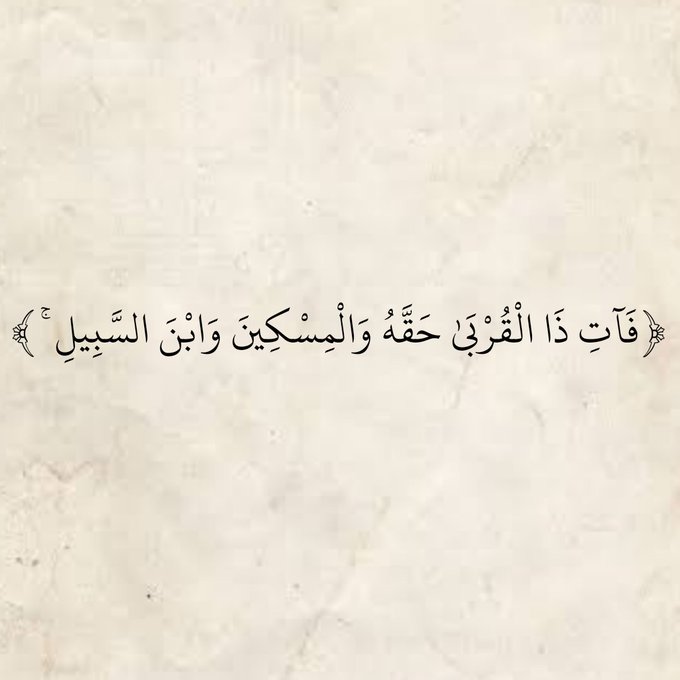 ﴿فَآتِ ذَا الْقُرْبَىٰ حَقَّهُ وَالْمِسْكِينَ وَابْنَ السَّبِيلِ ۚ﴾